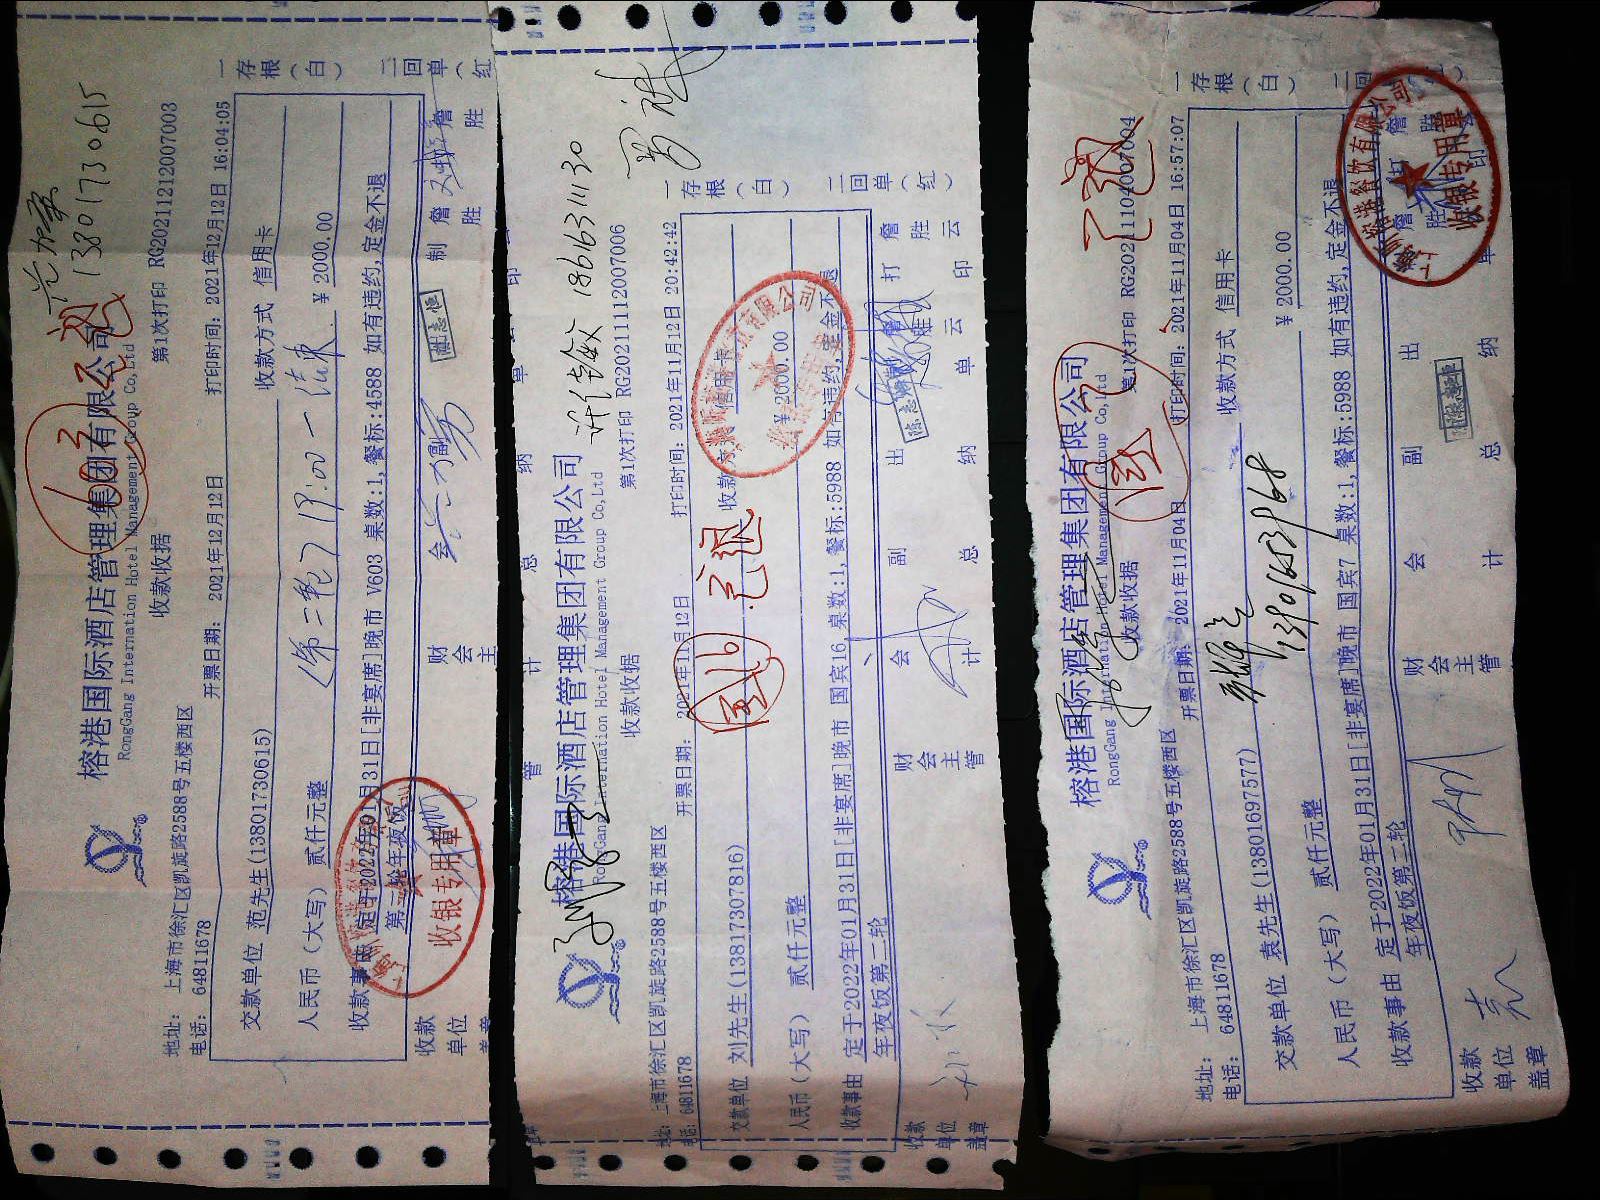 范加寅
13801730615
603
已退
榕港国际酒店管理集团有限公司
RongGang International Hotel Management Group Co,Ltd
收款收据
第1次打印 RG20211212007003
地址: 上海市徐汇区凯旋路2588号五楼西区
电话: 64811678
开票日期: 2021年12月12日
打印时间: 2021年12月12日 16:04:05
交款单位 范先生(13801730615)
收款方式 信用卡
人民币(大写) 贰仟元整
¥ 2000.00
(第二轮) 17:00-结束
收款事由 定于2022年01月31日[非宴席]晚市 V603 桌数:1,餐标:4588 如有违约,定金不退
第二轮年夜饭
收银专用章
一存根(白)
二回单(红
收款单位
财会主
会
副
制
詹胜
许铨敏 18616311130
榕港国际酒店管理集团有限公司
RongGang International Hotel Management Group Co,Ltd
收款收据
第1次打印 RG20211112007006
地址: 上海市徐汇区凯旋路2588号五楼西区
电话: 64811678
开票日期: 2021年11月12日
打印时间: 2021年11月12日 20:42:42
国16
已退
交款单位 刘先生(13817307816)
收款方式 信用卡
人民币(大写) 贰仟元整
¥ 2000.00
收款事由 定于2022年01月31日[非宴席]晚市 国宾16 桌数:1,餐标:5988 如有违约,定金不退
年夜饭第二轮
一存根(白)
二回单(红)
收款单位盖章
财会主管
会计
副总
出纳
打印
詹胜云
已退
榕港国际酒店管理集团有限公司
RongGang International Hotel Management Group Co,Ltd
收款收据
第1次打印 RG20211104007004
地址: 上海市徐汇区凯旋路2588号五楼西区
电话: 64811678
开票日期: 2021年11月04日
打印时间: 2021年11月04日 16:57:07
国7
交款单位 袁先生(13801697577)
收款方式 信用卡
13901653968
人民币(大写) 贰仟元整
¥ 2000.00
收款事由 定于2022年01月31日[非宴席]晚市 国宾7 桌数:1,餐标:5988 如有违约,定金不退
年夜饭第二轮
收银专用章
一存根(白)
二回
收款单位盖章
财会主管
会计
副总
出纳